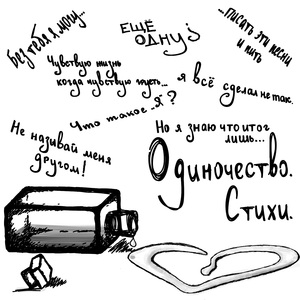 без тебя я могу...
ЕЩЁ
ОДНУ;
...писать эти песни
и пить
Чувствую жизнь
когда чувствую грусть...
я всё сделал не так.
Что такое "Я"?
Не называй меня
другом!
Но я знаю что итог
лишь...
Одиночество.
Стихи.